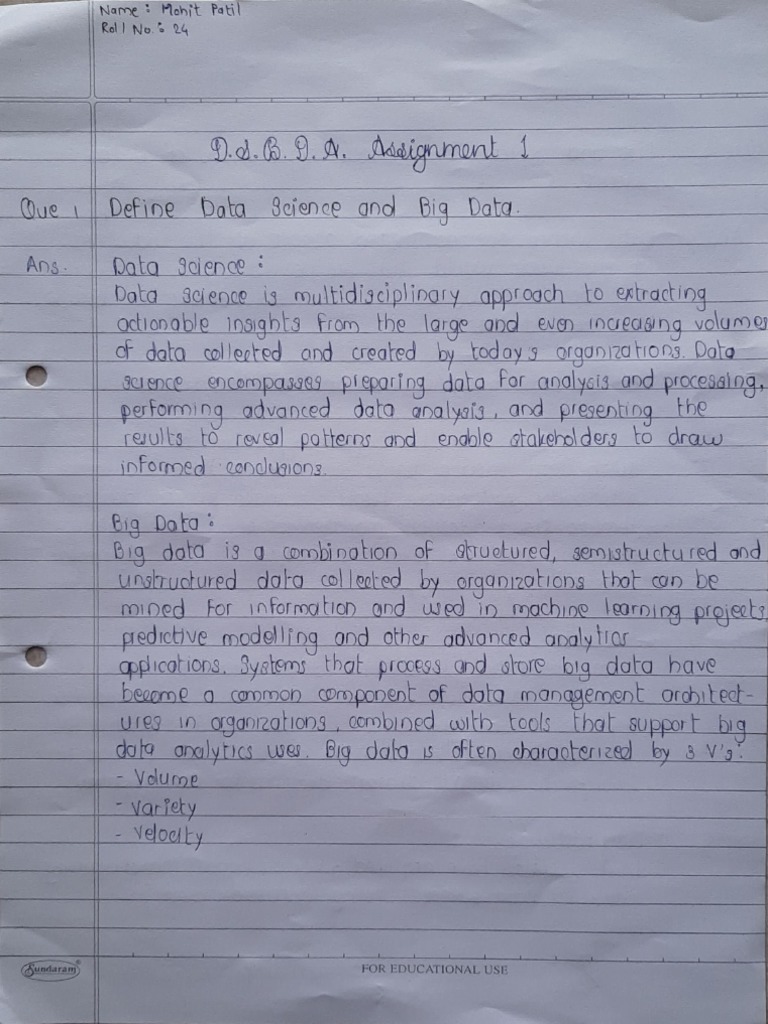 Name : Mohit Patil
Roll No. : 24
D.S.B.D.A. Assignment 1
Que 1 Define Data Science and Big Data.
Ans. Data Science :
Data science is multidisciplinary approach to extracting
actionable insights from the large and even increasing volumes
of data collected and created by today's organizations. Data
science encompasses preparing data for analysis and processing,
performing advanced data analysis, and presenting the
results to reveal patterns and enable stakeholders to draw
informed conclusions.
Big Data :
Big data is a combination of structured, semistructured and
unstructured data collected by organizations that can be
mined for information and used in machine learning projects,
predictive modelling and other advanced analytics
applications. Systems that process and store big data have
become a common component of data management architect-
ures in organizations, combined with tools that support big
data analytics uses. Big data is often characterized by 3 V's :
- Volume
- Variety
- Velocity
Sundaram
FOR EDUCATIONAL USE